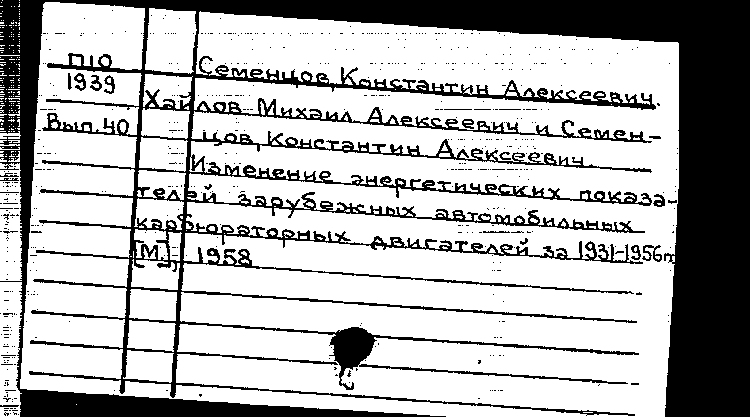 П10
1939
Вып.40
Семенцов, Константин Алексеевич.
Хайлов Михаил Алексеевич и Семен-
цов, Константин Алексеевич.
Изменение энергетических показа-
телей зарубежных автомобильных
карбюраторных двигателей за 1931-1956гг
[М.], 1958